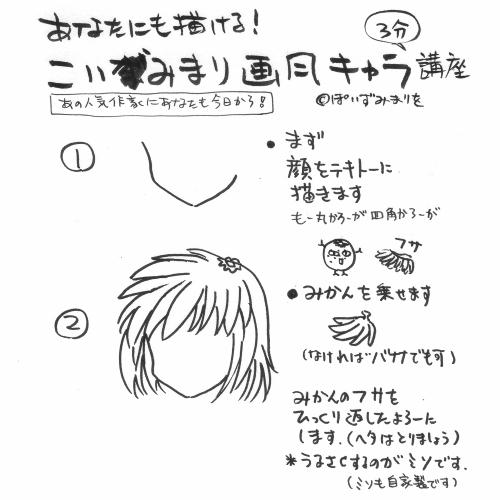 あなたにも描ける!
3分
こいずみまり画風キャラ講座
あの人気作家にあなたも今日から!
©ぽいずみまりを
①
・まず
顔をテキトーに
描きます
もー丸かろーが四角かろーが
フサ
②
・みかんを乗せます
(なければバナナでも可)
みかんのフサを
ひっくり返したよろーに
します.(ヘタはとりましょう)
*うるさくするのがミソです.
(ミソも自家製です)